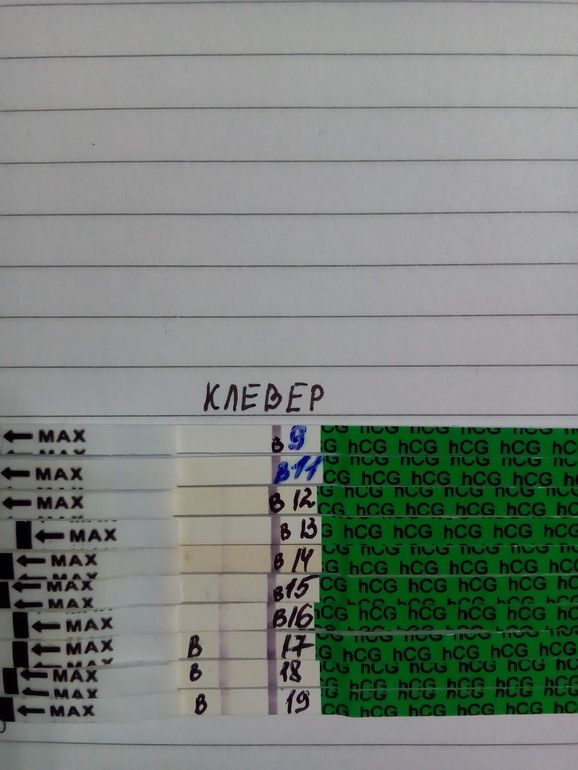 КЛЕВЕР
← MAX В 9 hCG hCG hCG hCG
← MAX В 11 hCG hCG hCG hCG
← MAX В 12 hCG hCG hCG hCG
← MAX В 13 hCG hCG hCG hCG
← MAX В 14 hCG hCG hCG hCG
← MAX В 15 hCG hCG hCG hCG
← MAX В 16 hCG hCG hCG hCG
← MAX В 17 hCG hCG hCG hCG
← MAX В 18 hCG hCG hCG hCG
← MAX В 19 hCG hCG hCG hCG